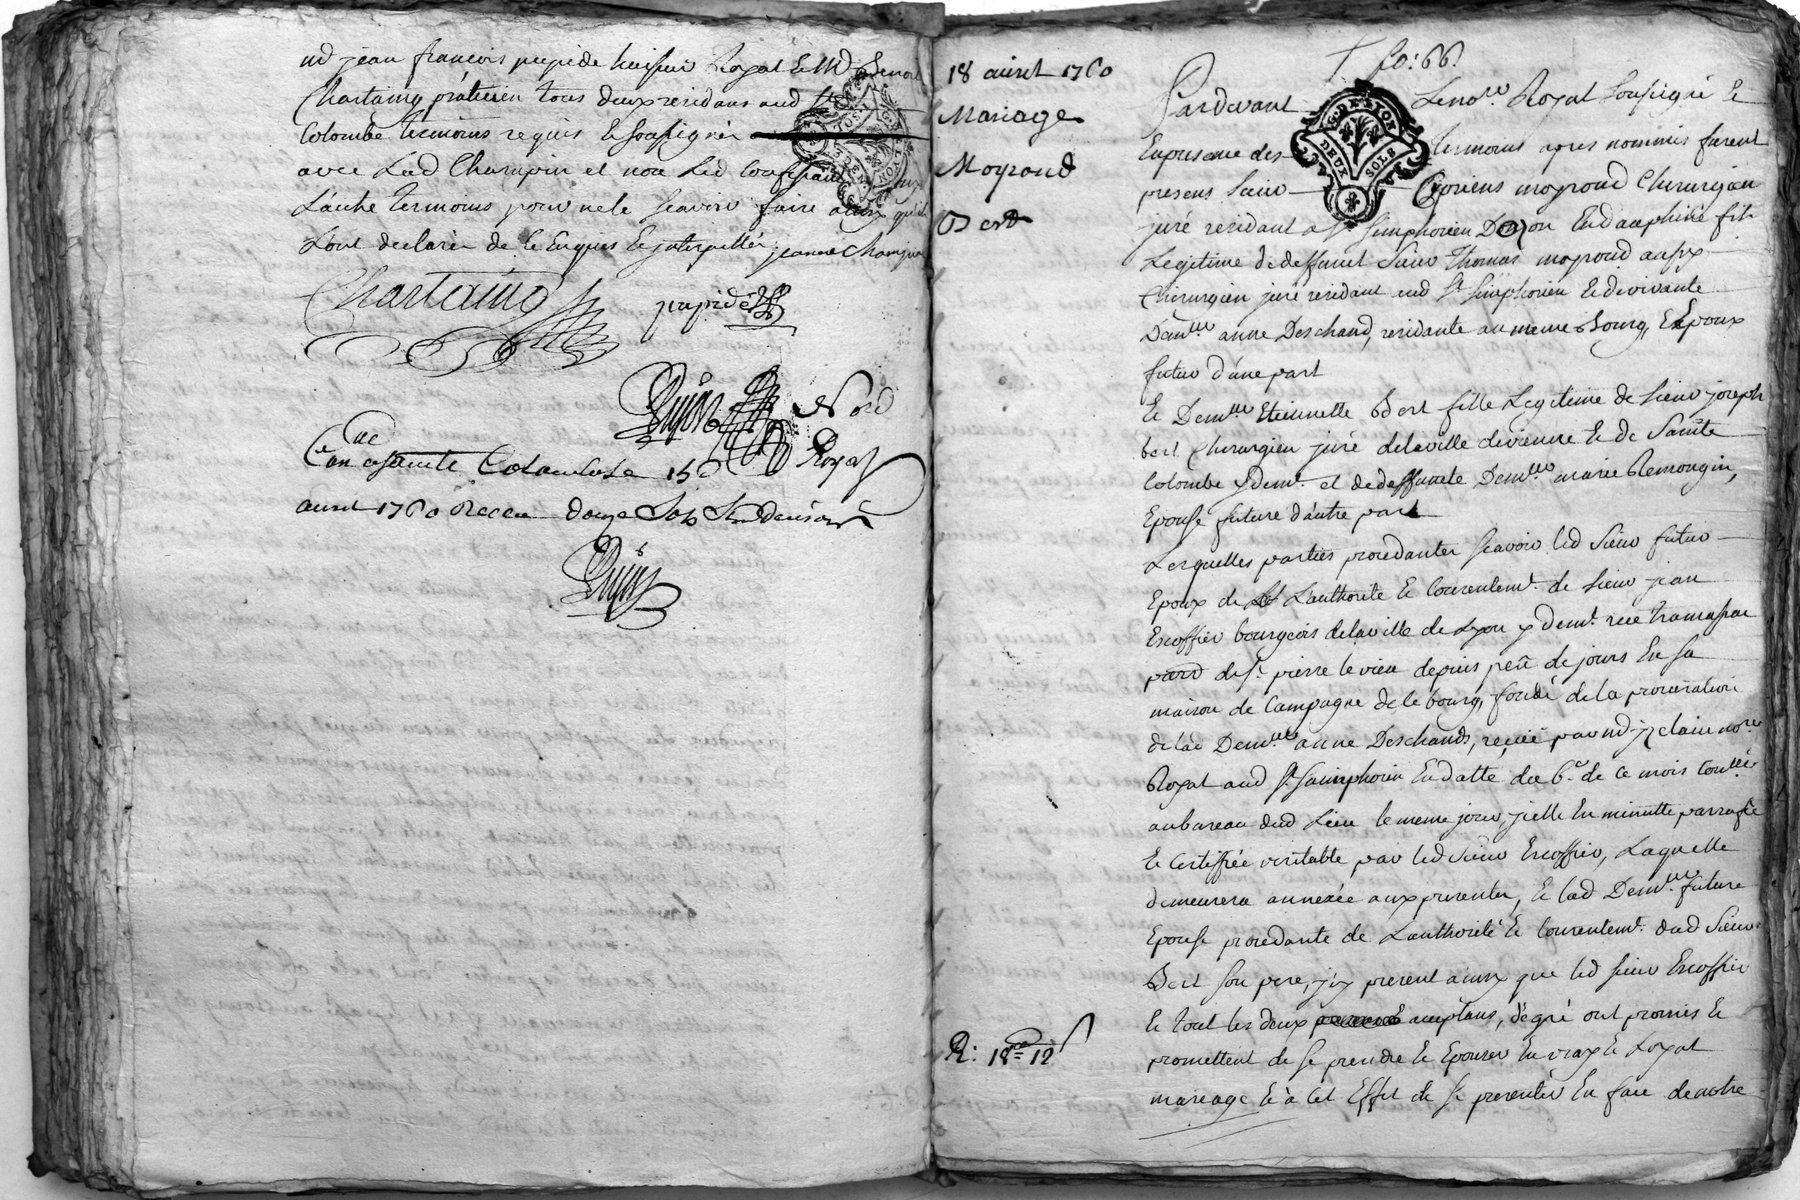 md jean francois pupide huissier Royal et Md Benoit
Chartaing praticien tous deux residans aud Ste
Colombe temoins requis et soussignés
avec Lad Champin et non Led
L'autre temoins pour ne le scavoir faire ainsy qu'ils
L'ont declarés de ce Enquis et interpellés. jeanne Champin
Chartaing
pupide
Guyon
No.re
Royal
C.on.lle a Sainte Colombe le 15e
avril 1760 Receu douze Sols Six deniers
Guyon
18 avril 1760
Mariage
Moyroud
Bert
R: 18# 12s
fo: 66.
Pardevant Le no.re Royal soussigné et
En presence des temoins apres nommés furent
presens sieur moyroud Chirurgien
juré residant a St Simphorien Dozon En dauphiné fils
Legitime de deffunt sieur thomas moyroud aussy
Chirurgien juré residant aud St simphorien et de vivante
Dem.lle anne Deschand, residante au meme Bourg, Epoux
futur d'une part
Et Dem.lle Etiennette Bert fille Legitime de sieur joseph
bert Chirurgien juré de la ville de vienne et de Sainte
Colombe y dem.t et de deffunte Dem.lle marie Remongin,
Epouse future d'autre part
Lesquelles parties procedantes scavoir led Sieur futur
Epoux de L'authorité et Consentem.t de sieur jean
Escoffier bourgeois de la ville de Lyon y dem.t rue tramassac
parr. de St pierre le vieu depuis peu de jours En sa
maison de Campagne de ce bourg, fondé de la procuration
de lad Dem.lle anne Deschands, recue par md clair no.re
Royal aud St Saimphorien En datte du 6e de ce mois Con.lée
au bureau dud Lieu le meme jour, jcelle En minutte parraffée
Et Certiffiée veritable par led Sieur Escoffier, Laquelle
demeurera annexée aux presentes, et lad Dem.lle future
Epouse procedante de L'authorité et Consentem.t dud Sieur
Bert son pere, jcy present ainsy que led sieur Escoffier
Et tout les deux acceptans, de gré ont promis et
promettent de se prendre et Epouser En vray et Loyal
mariage et a Cet Effet de se presenter En face de notre